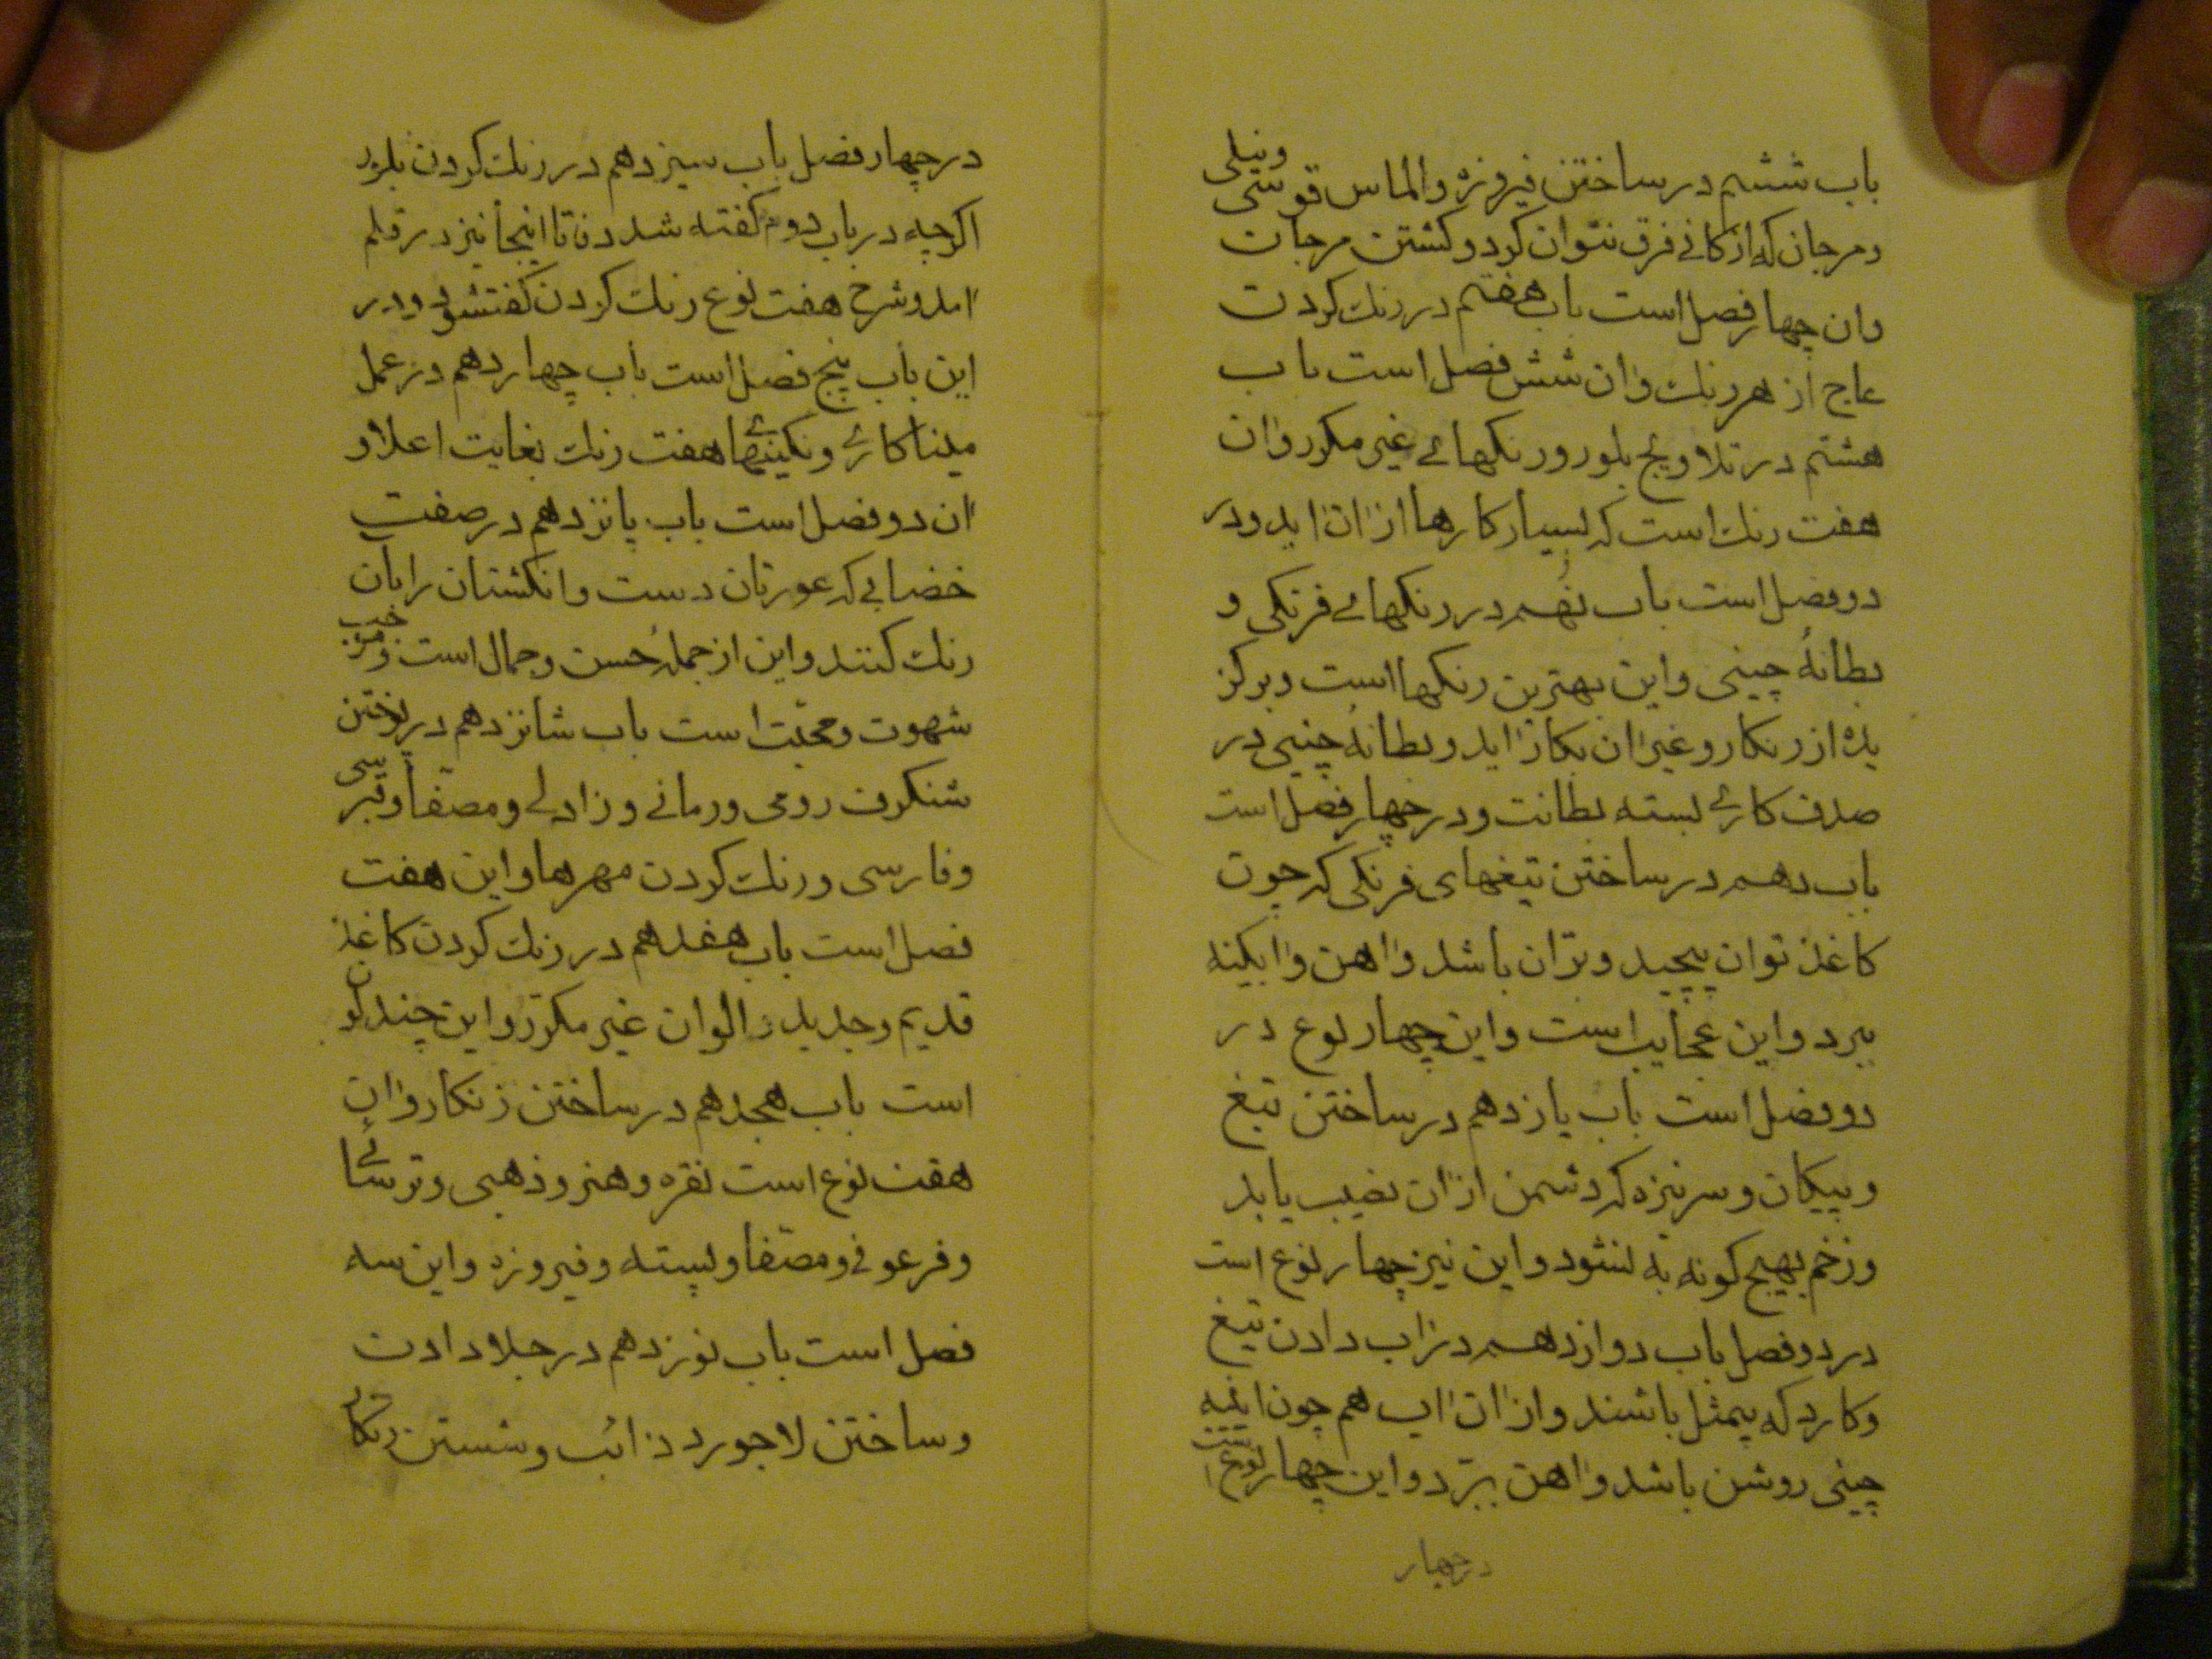 باب ششم در ساختن فیروزه والماس قوسی ونیلی
ومرجان که از کانی فرق نتوان کرد وکشتن مرجان
وان چهار فصل است باب هفتم در رنك کردن
عاج از هر رنك وان شش فصل است باب
هشتم در تلاویح بلور ورنکهائے غیر مکرر وان
هفت رنك است که بسیار کارها ازان اید ودر
دو فصل است باب نهم در رنکهائے فرنکی و
بطانهٔ چینی واین بهترین رنکها است
یده از زنکار وغیر ان بکار اید وبطانهٔ چینی در
صدف کاری بسته بطانت ودر چهار فصل است
باب دهم در ساختن تیغهای فرنکی که چون
کاغذ توان پیچید وبران باشد واهن وابکینه
ببرد واین عجایب است واین چهار نوع در
دو فصل است باب یازدهم در ساختن تیغ
وپیکان وسر نیزه که دشمن ازان نصیب یابد
وزخم بهیچ کونه به نشود واین نیز چهار نوع است
در دو فصل باب دوازدهم در اب دادن تیغ
وکارد که بیمثل باشند وازان اب هم چون اینه
چینی روشن باشد واهن ببرد واین چهار نوع است
در چهار
در چهار فصل باب سیزدهم در رنك کردن بلور
اکرچه در باب دوم کفته شد تا اینجا نیز در قلم
امد وشرح هفت نوع رنك کردن کفته شود ودر
این باب پنج فصل است باب چهاردهم در عمل
مینا کاری ونکینهائے هفت رنك بغایت اعلا و
ان دو فصل است باب پانزدهم در صفت
خضابی که عورتان دست وانکشتان را بان
رنك کنند واین از جملهٔ حسن وجمال است
شهوت ومحبت است باب شانزدهم در پختن
شنکرف رومی ورمانی و زادلی ومصفا
وفارسی ورنك کردن مهرها واین هفت
فصل است باب هفدهم در رنك کردن کاغذ
قدیم وجدید والوان غیر مکرر واین چند کون
است باب هجدهم در ساختن زنکار وان
هفت نوع است نقره وهنر وذهبی وترسائی
وفرعونی ومصفا وپسته وفیروزه واین سه
فصل است باب نوزدهم در جلا دادن
وساختن لاجورد ذائب وشستن